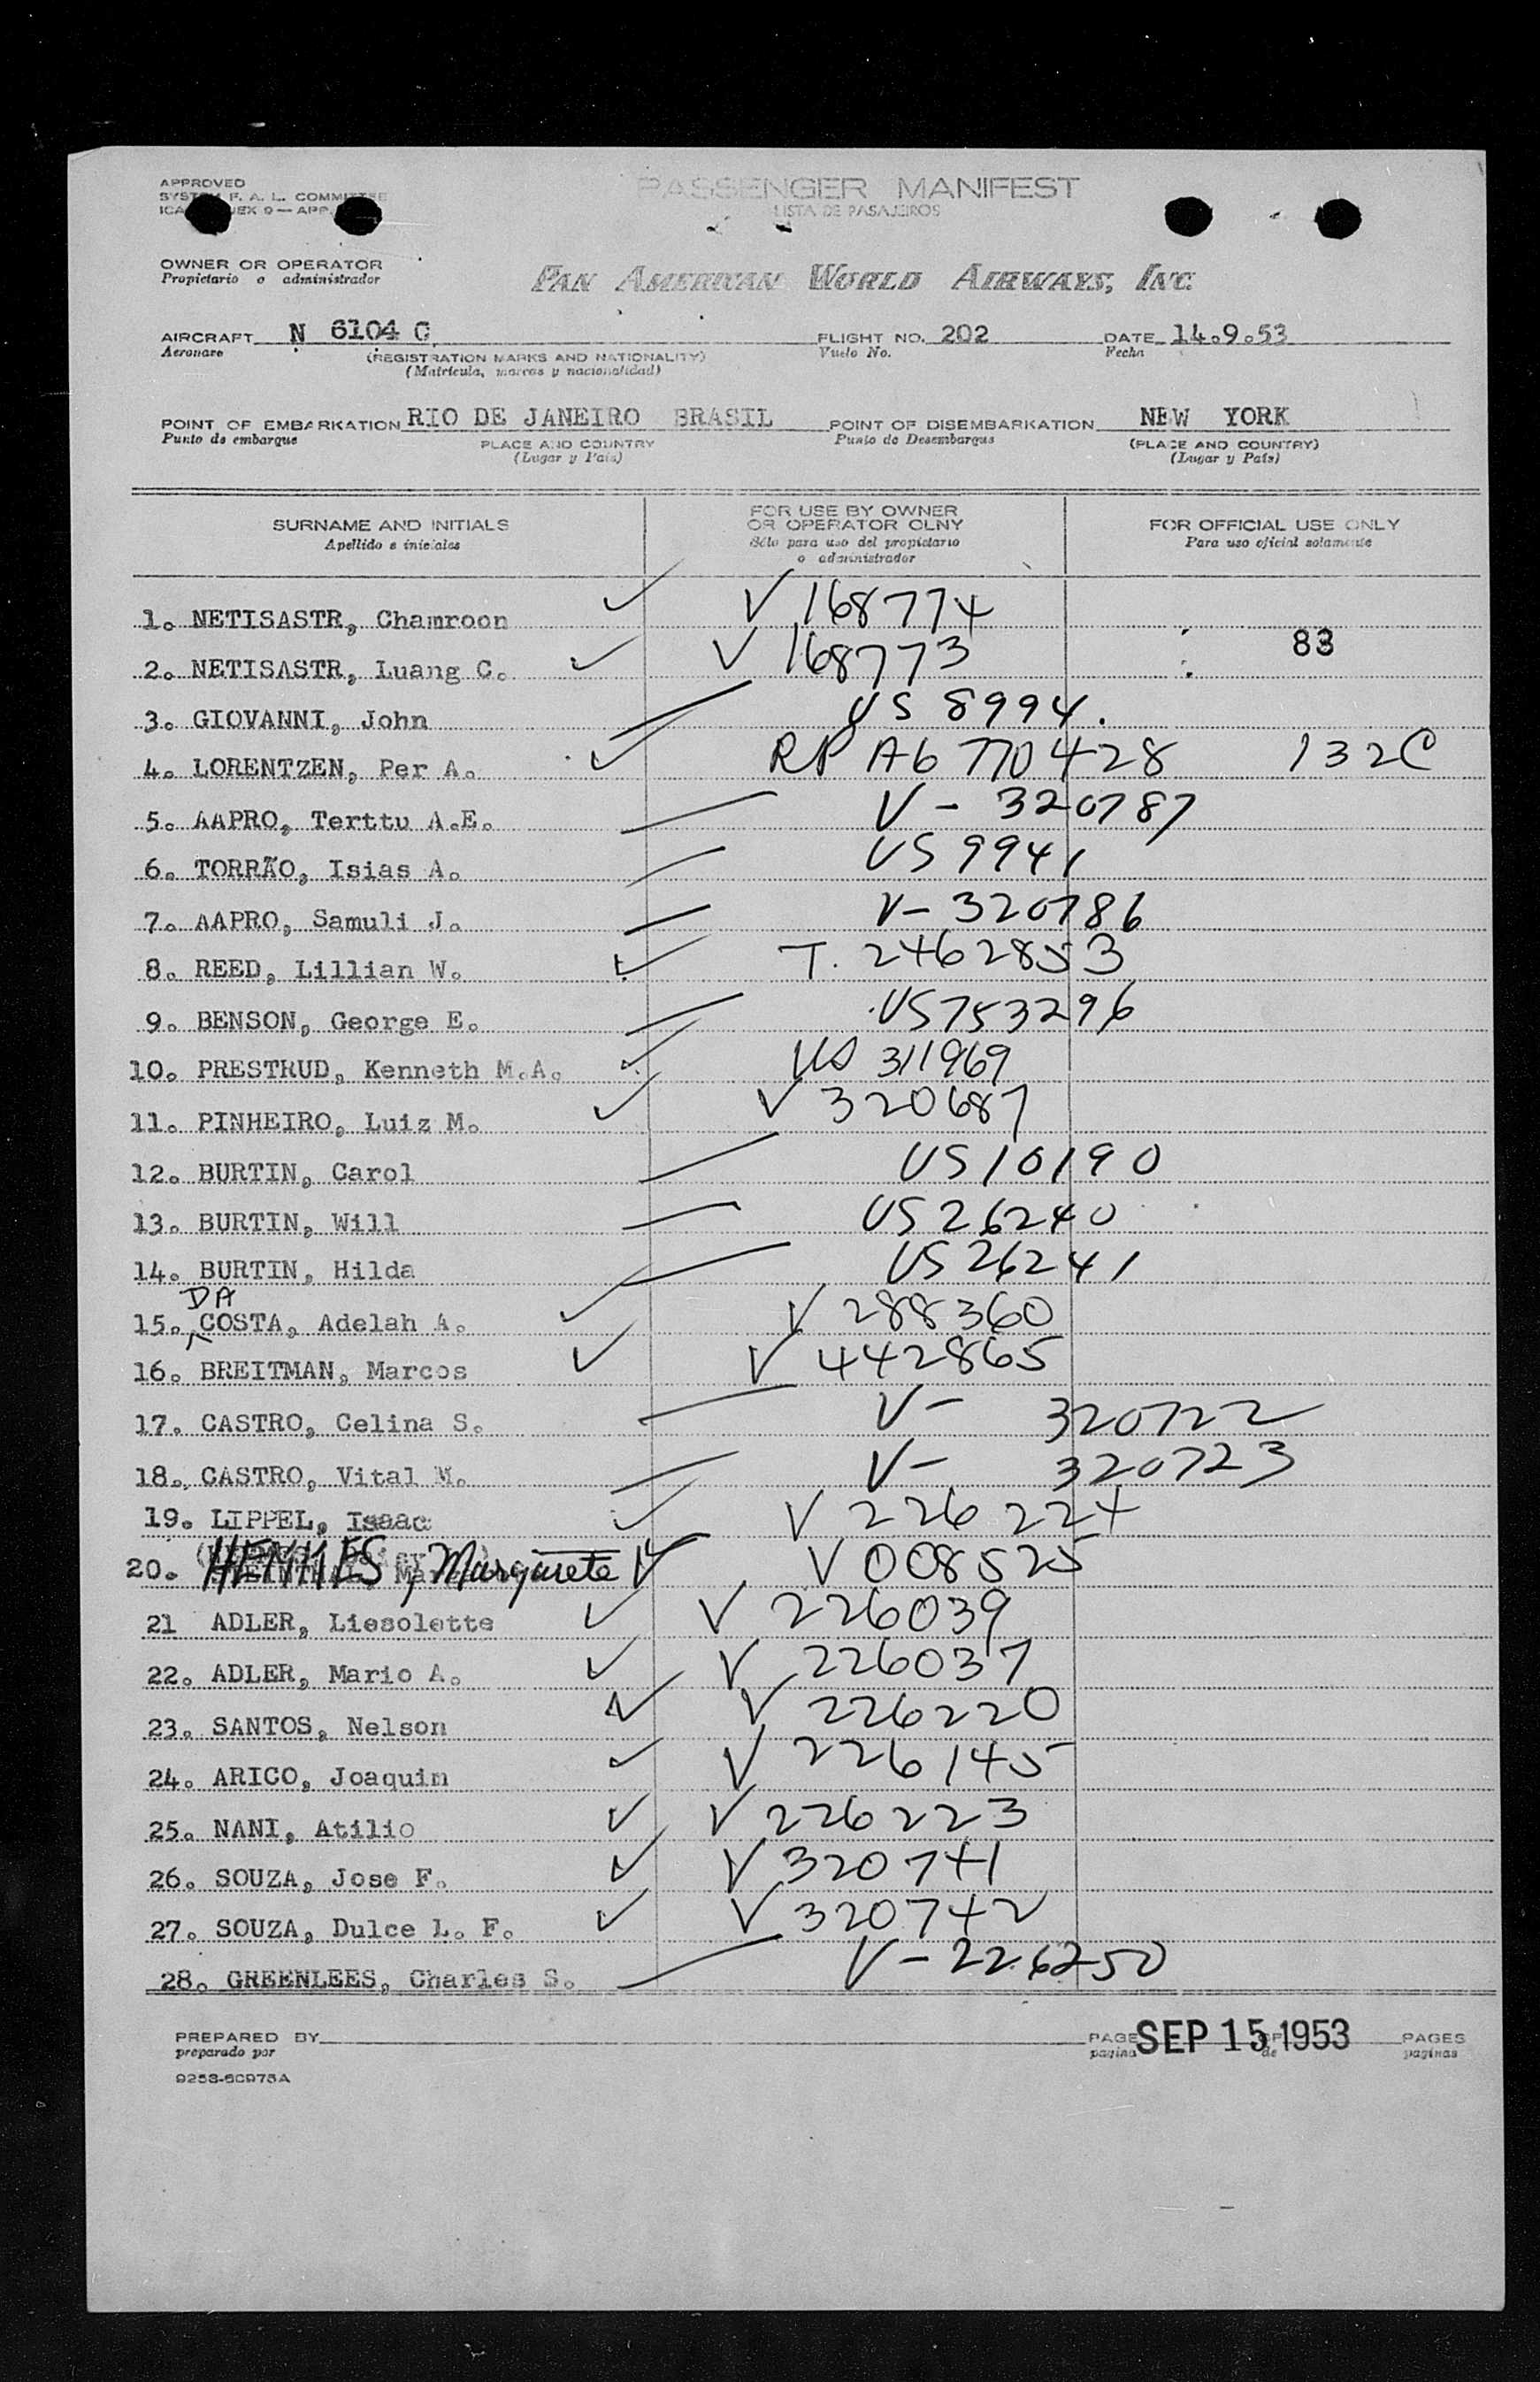 APPROVED
PASSENGER MANIFEST
LISTA DE PASAJEIROS
OWNER OR OPERATOR
Propietario o administrador
PAN AMERICAN WORLD AIRWAYS, INC.
AIRCRAFT N 6104 C FLIGHT NO. 202 DATE 14.9.53
Aeronave (REGISTRATION MARKS AND NATIONALITY) Vuelo No. Fecha
(Matrícula, marcas y nacionalidad)
POINT OF EMBARKATION RIO DE JANEIRO BRASIL POINT OF DISEMBARKATION NEW YORK
Punto de embarque PLACE AND COUNTRY Punto de Desembarque (PLACE AND COUNTRY)
(Lugar y País) (Lugar y País)
SURNAME AND INITIALS FOR USE BY OWNER OR OPERATOR OLNY FOR OFFICIAL USE ONLY
Apellido e iniciales Sólo para uso del propietario o administrador Para uso oficial solamente
1. NETISASTR, Chamroon V 168774
83
2. NETISASTR, Luang C. V 168773
3. GIOVANNI, John US 8994.
4. LORENTZEN, Per A. RP A6 770428 132C
5. AAPRO, Terttu A.E. V- 320787
6. TORRÃO, Isias A. US 9941
7. AAPRO, Samuli J. V- 320786
8. REED, Lillian W. T. 2462853
9. BENSON, George E. US753296
10. PRESTRUD, Kenneth M.A. US 311969
11. PINHEIRO, Luiz M. V 320687
12. BURTIN, Carol US10190
13. BURTIN, Will US26240
14. BURTIN, Hilda US26241
15. DA COSTA, Adelah A. V 288360
16. BREITMAN, Marcos V 442865
17. CASTRO, Celina S. V- 320722
18. CASTRO, Vital M. V- 320723
19. LIPPEL, Isaac V 226224
20. HENKES, Margarete V 008525
21 ADLER, Liesolette V 226039
22. ADLER, Mario A. V 226037
23. SANTOS, Nelson V 226220
24. ARICO, Joaquim V 226145
25. NANI, Atilio V 226223
26. SOUZA, Jose F. V 320741
27. SOUZA, Dulce L. F. V 320742
28. GREENLEES, Charles S. V-226250
PREPARED BY PAGE SEP 15 1953 PAGES
preparado por pagina de paginas